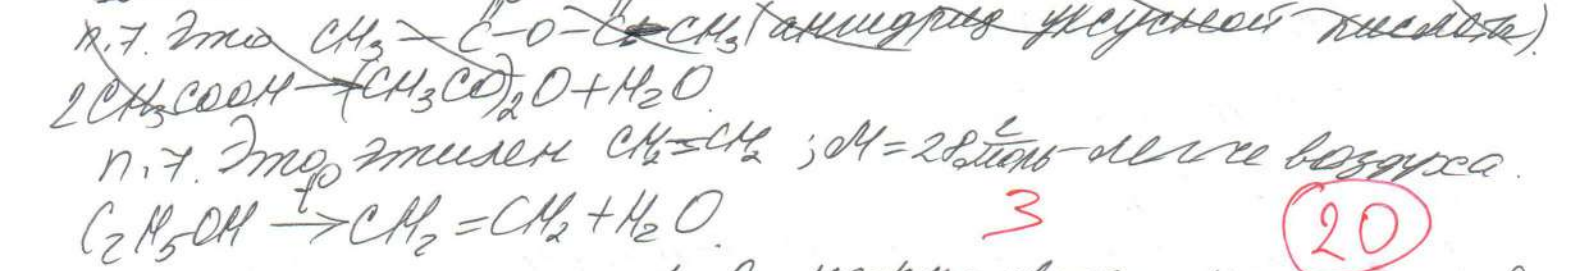 п.7. Это CH3–C–O–C–CH3 (ангидрид уксусной кислоты).
2CH3COOH → (CH3CO)2O + H2O.
п.7. Это этилен CH2=CH2; M=28 г/моль - легче воздуха.
C2H5OH t° → CH2=CH2 + H2O.
3
20